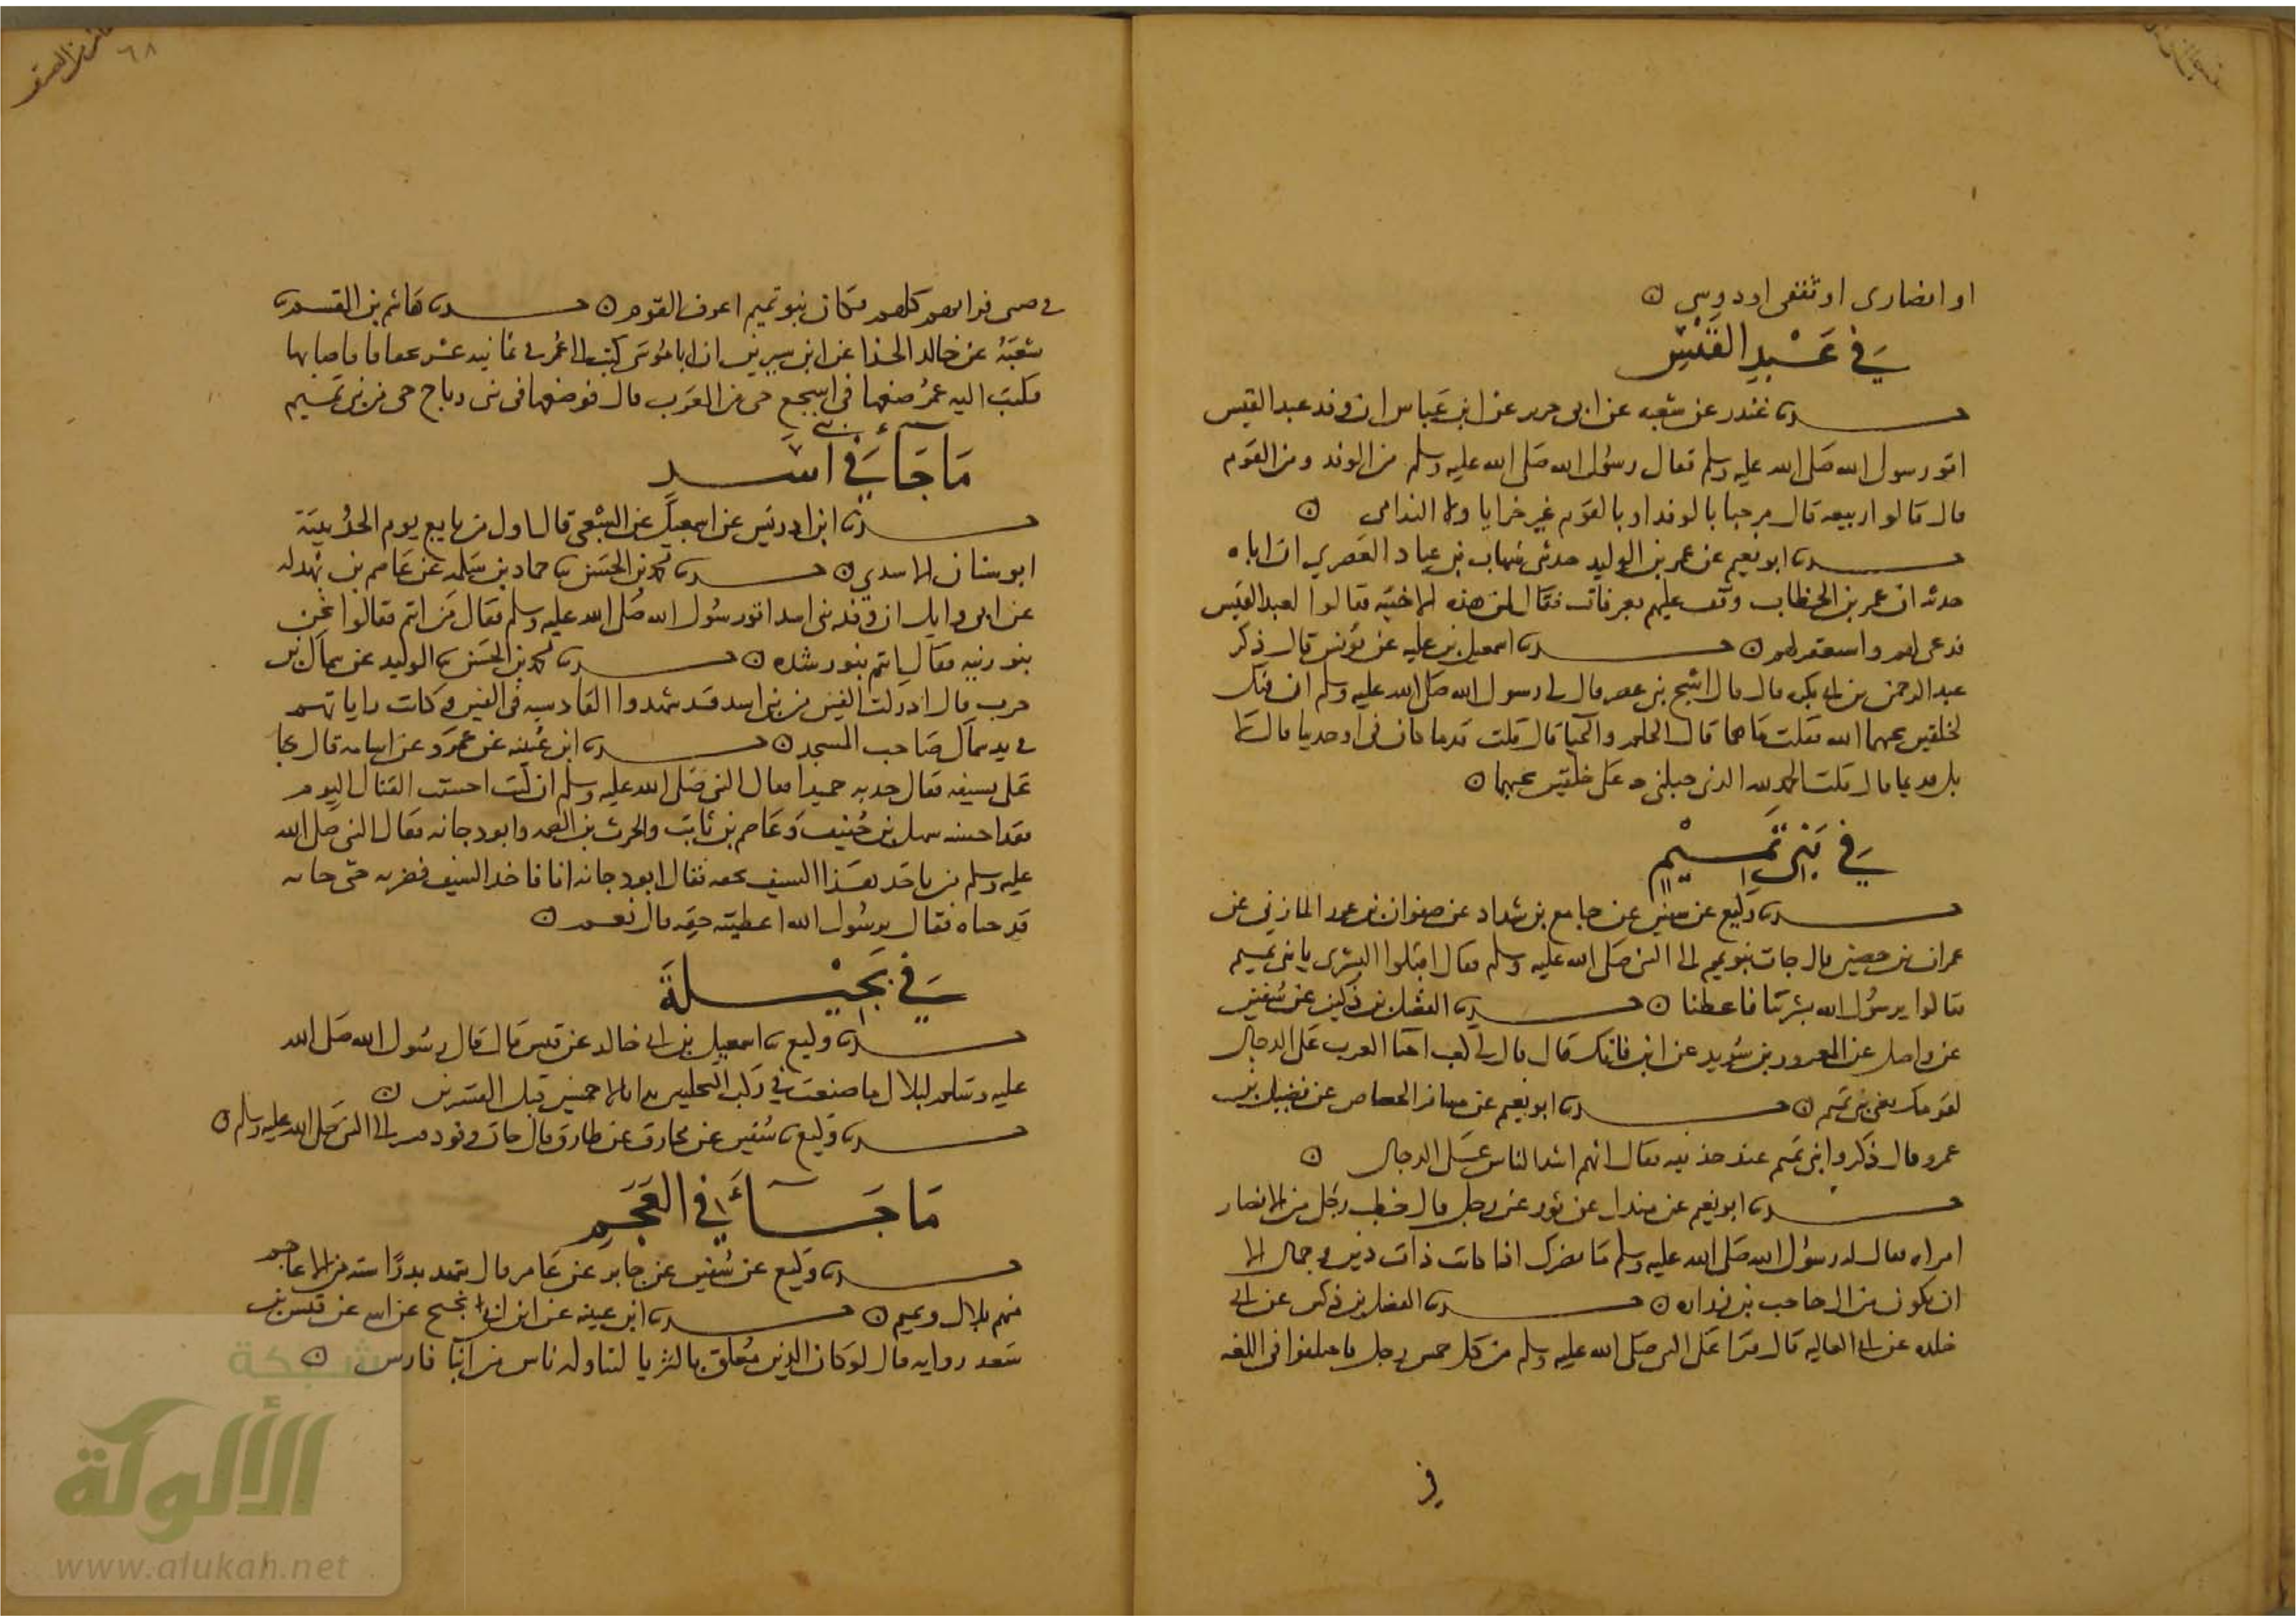 او انصارى او ثقفى او دوسى
في عَبْدِ القَيْس
حدثنا غندر عن شعبه عن ابى جمره عن ابن عَباس ان وفد عبد القيس
اتو رسول الله صَلى الله عليه وسلم فقال رسُول الله صَلى الله عليه وسلم من الوفد ومن القوَم
قال قالوا ربيعه قال مرحبا بالوفد او بالقوَم غير خزايا ولا الندامى
حدثنا ابو نعيم عن عمر بن الوليد حدثنى شهاب بن عباد العَصري ان اباه
حدثه ان عمر بن الخطاب وقف عليهم بعرفات فقال لمن هذه الاخبيَه فقالوا لعبد القيس
فدعى لهم واستغفر لهم حدثنا اسمعيل بن عليه عن يونس قال ذكر
عبد الرحمن بن ابى بكره قال قال اشج بنى عصر قال لى رسول الله صَلى الله عليه وسلم ان فيك
لخلقين يحبهما الله فقلت مَا هما قال الحلم والحيا قال قلت قديما كان فى او حديثا قال لا
بل قديما قال قلت الحمد لله الذى جبلنى على خلقين يحبهما
في بَنِى تَمِيْم
حدثنا وكيع عن سفين عن جامع بن شداد عن صفوان بن محرز المازني عن
عمران بن حصين قال جات بنو تميم الى النبى صَلى الله عليه وسلم فقال ابشروا البشرى يا بنى تميم
فقالوا يرسُول الله بشرتنا فاعطنا حدثنا الفضل بن دُكين عن سُفين
عن واصل عن المعرور بن سُويد عن ابن فاتك قال قال لى كعب اشد احيا العرب عَلى الدجال
لقومك يعنى بنى تميم حدثنا ابو نعيم عن مسافر الجصاص عن فضيل بن
عمرو قال ذكروا بنى تميم عند حذيفه فقال انهم اشد الناس عَلى الدجال
حدثنا ابو نعيم عن مندل عن ثور عن رجل قال خطب رجُل من الانصار
امراه فقال له رسُول الله صَلى الله عليه وسلم مَا يضرك اذا كانت ذات دين وجمال الا
ان تكون من ال حاجب بن زراره حدثنا الفضل بن دكين عن ابى
خلده عن ابى العاليه قال قرا عَلى النبى صَلى الله عليه وسلم من كل خمس رجل فاختلفوا فى اللغه
فى
٦٨
فرضى قراتهم كلهم فكان بنو تميم اعرف القوم حدثنا هَاشم بن القسم حدثنا
شعبَه عن خالد الحذا عن ابن سيرين ان ابا مُوسَى كتب الى عُمر فى ثمانيه عشر تجفافا اصابها
فكتبَ اليه عمرُ ضعها فى اشجع حى من العَرَب قال فوضعها فى بنى رباح حى من بنى تميم
مَا جَآءَ في بنى اسَد
حدثنا ابن ادريس عن اسمعيل عن الشعبى قال اول من بايع يوم الحدُيبيَة
ابو سنان الاسدي حدثنا محمد بن الحَسَن ثنا حماد بن سَلمه عن عَاصم بن بهدله
عن ابى وايل ان وفد بنى اسد اتو رسُول الله صَلى الله عليه وسلم فقال مَن انتم فقالوا نحن
بنو زنيه فقال انتم بنو رشده حدثنا محمد بن الحَسن ثنا الوليد عن سماك بن
حرب قال ادركت الفين من بنى اسد قد شهدوا القادسيه فى الفين وكانت راياتهم
فى يد سماك صَاحب المسجد حدثنا ابن عُيينه عن عمرو عن عكرمه قال جا
عَلى بسيفه فقال خذيه حميدا فقال النبى صَلى الله عليه وسلم ان كنت احسنت القتال اليوم
فقد احسنه سهل بن حُنيف وعَاصم بن ثابت والحرث بن الصمه وابو دجانه فقال النبى صَلى الله
عليه وسلم من ياخذ هَذا السيف بحقه فقال ابو دجانه انا فاخذ السَيف فضرب به حتى جا به
قد حناه فقال يرسُول الله اعطيته حقه قال نعم
في بَجِيْلَة
حدثنا وكيع ثنا اسمعيل بن ابى خالد عن قيس قال قال رسُول الله صَلى الله
عليه وسَلم لبلال ما صنعت في ركب البجليين ابدا بالاحمسيين قبل القسريين
حدثنا وكيع ثنا سُفين عن مخارق عن طارق قال جات وفود قسر الى النبى صَلى الله عليه وسلم
مَا جَآءَ في العَجَمِ
حدثنا وكيع عن سُفين عن جابر عن عَامر قال شهد بدرًا سته من الاعاجم
منهم بلال وتميم حدثنا ابن عيينه عن ابن ابى نجيح عن ابيه عن قيس بن
سَعد روايه قال لو كان الدين مُعلق بالثريا لتناوله ناس من ابنا فارس
شبكة
الألوكة
www.alukah.net